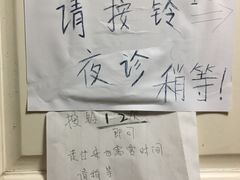 请按铃
夜诊稍等!
按铃1-2次
即可
走过来也需要时间
请稍等